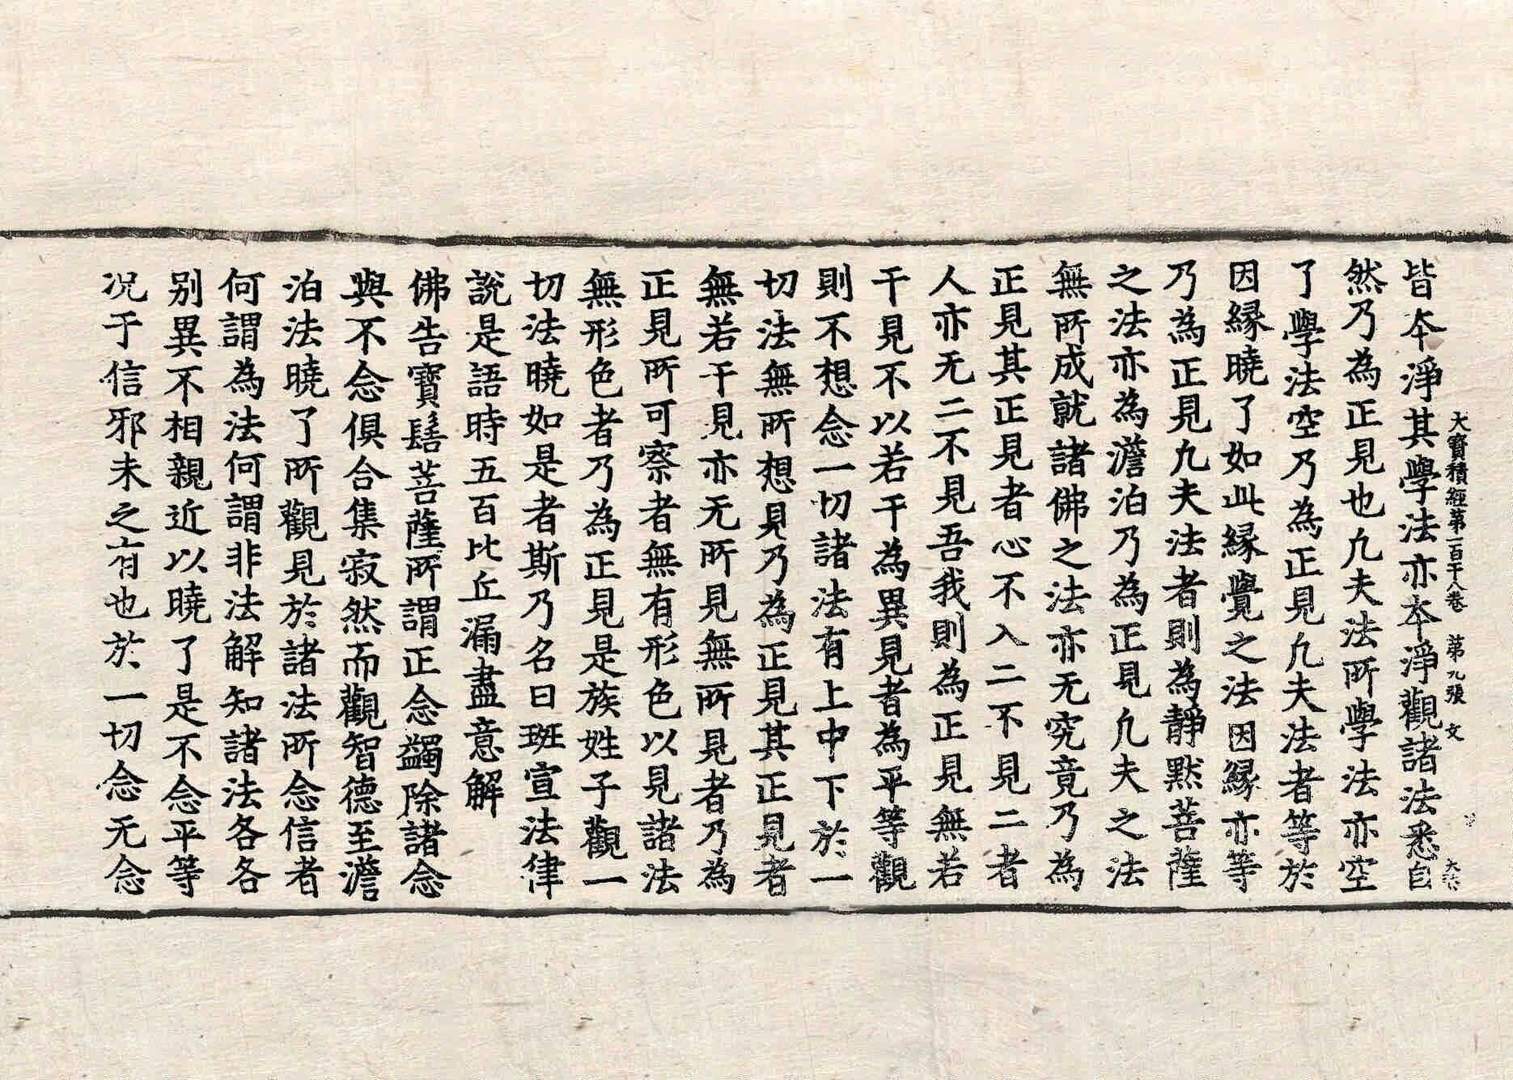 大寶積經第一百十八卷 第九張 文
皆夲淨其學法亦夲淨觀諸法悉自
然乃為正見也九夫法所學法亦空
了學法空乃為正見九夫法者等於
因縁曉了如此縁覺之法因縁亦等
乃為正見九夫法者則為靜默菩薩
之法亦為澹泊乃為正見九夫之法
無所成就諸佛之法亦无究竟乃為
正見其正見者心不入二不見二者
人亦无二不見吾我則為正見無若
干見不以若干為異見者為平等觀
則不想念一切諸法有上中下於一
切法無所想見乃為正見其正見者
無若干見亦无所見無所見者乃為
正見所可察者無有形色以見諸法
無形色者乃為正見是族姓子觀一
切法曉如是者斯乃名曰班宣法律
說是語時五百比丘漏盡意解
佛告寶髻菩薩所謂正念蠲除諸念
與不念俱合集寂然而觀智德至澹
泊法曉了所觀見於諸法所念信者
何謂為法何謂非法解知諸法各各
別異不相親近以曉了是不念平等
况于信邪未之有也於一切念无念